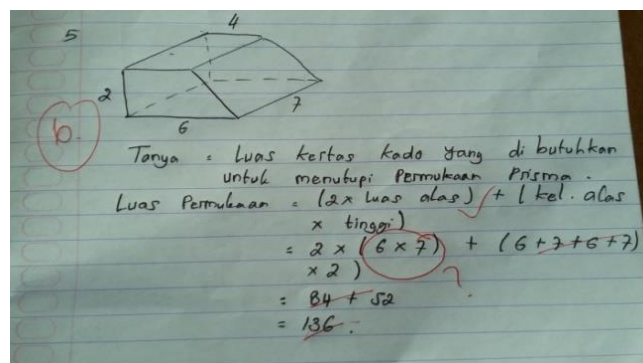 5
4
2
6
7
b.
Tanya = Luas kertas kado yang di butuhkan
untuk menutupi Permukaan Prisma.
Luas Permukaan = (2x luas alas) + (kel. alas
x tinggi)
= 2 x (6 x 7) + (6+7+6+7)
x 2)
?
= 84 + 52
= 136.